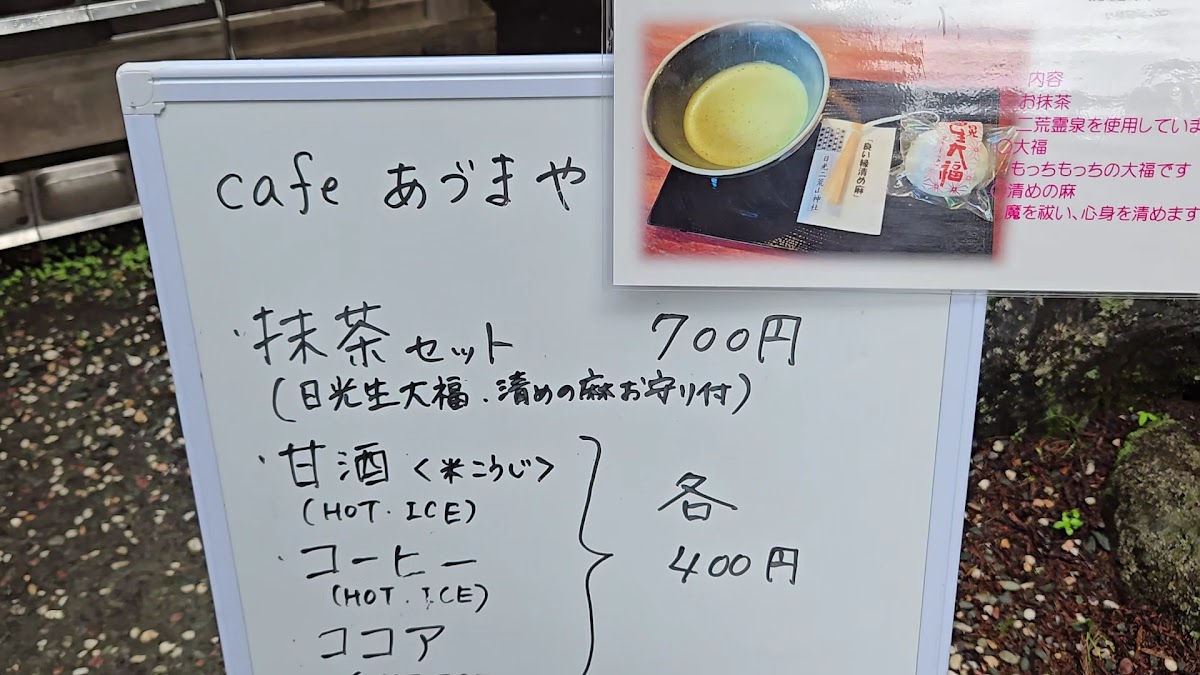 cafe あづまや
・抹茶セット 700円
(日光生大福・清めの麻お守り付)
・甘酒〈米こうじ〉
(HOT・ICE)
・コーヒー
(HOT・ICE)
・ココア
各
400円
内容
お抹茶
二荒霊泉を使用していま
の大福
もっちもっちの大福です
清めの麻
魔を祓い、心身を清めます
「良い縁清め麻」
日光二荒山神社
生大福